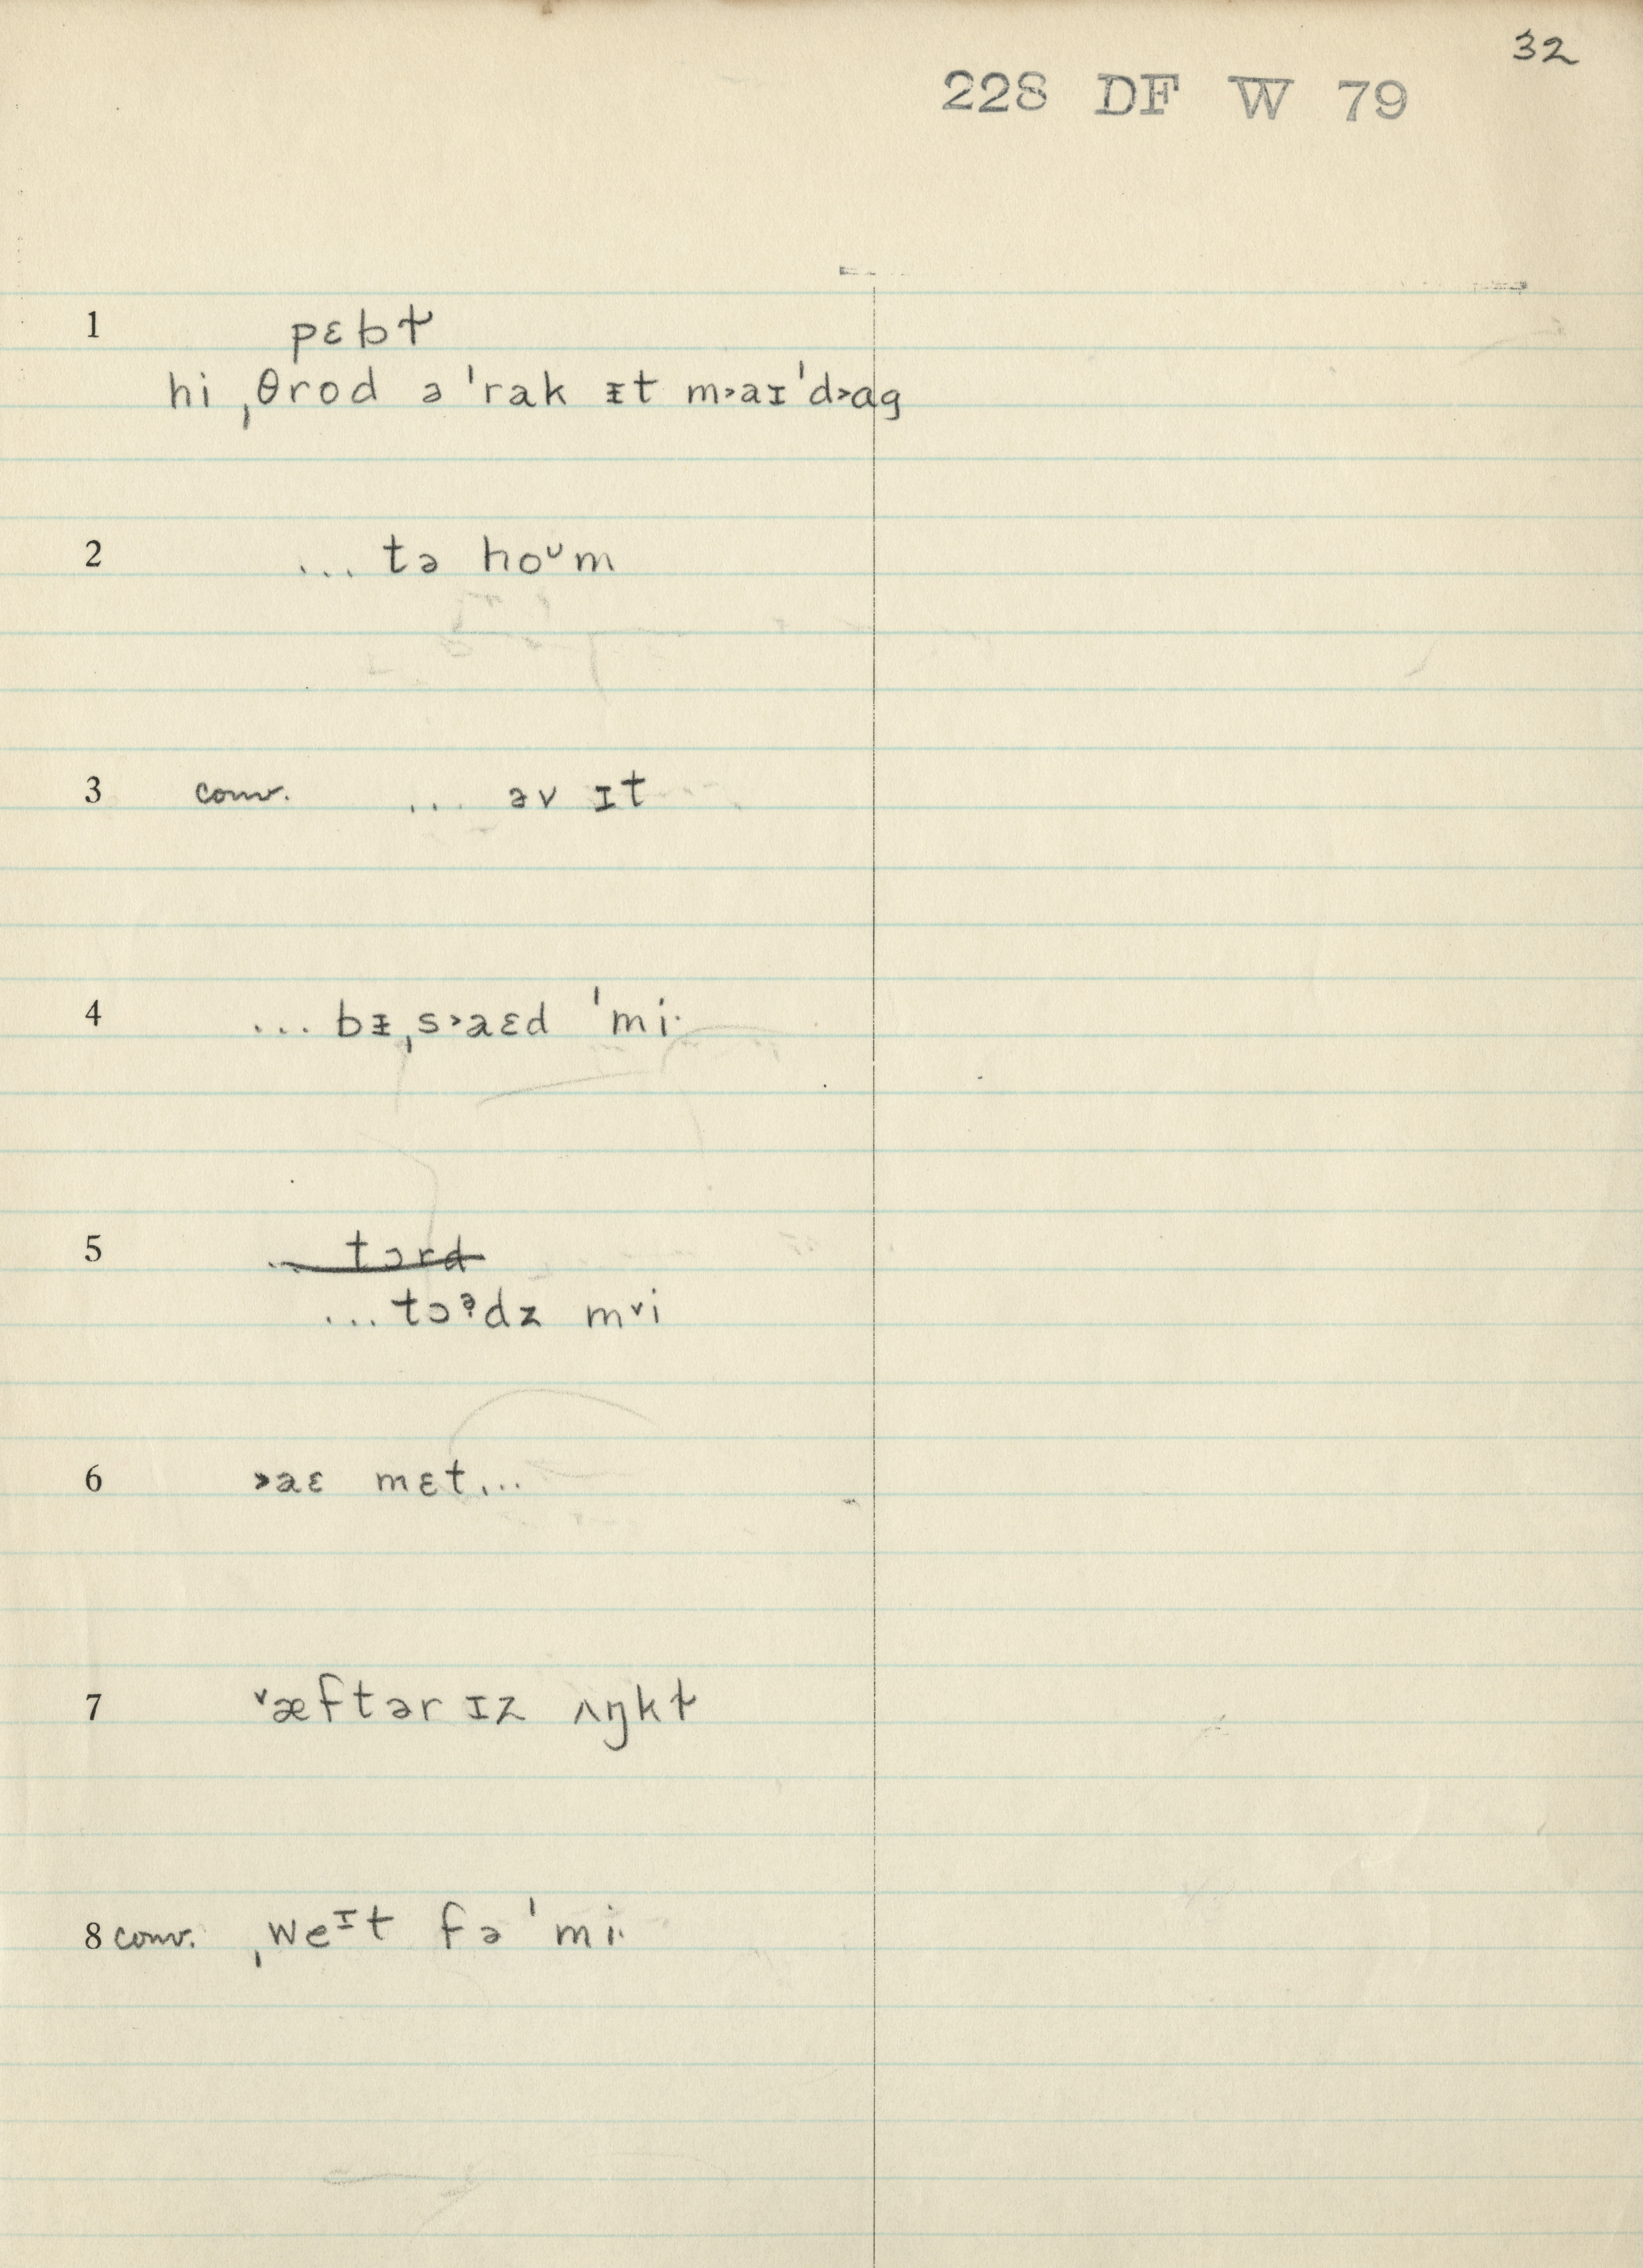 32
228 DF W 79
1 pɛbɫ
hi ˌθrod ə ˈrak ᵻt m˃aɪˈd˃ag
2 ... tə hoᶷm
3 conv. ... əv ɪt
4 ... bᵻˌs˃aɛd ˈmi·
5 ... tɔrd
... tɔᵊdz m˅i
6 ˃aɛ mɛt...
7 ˅æftər ɪz ʌŋkɫ
8 conv. ˌweᶦt fə ˈmi·